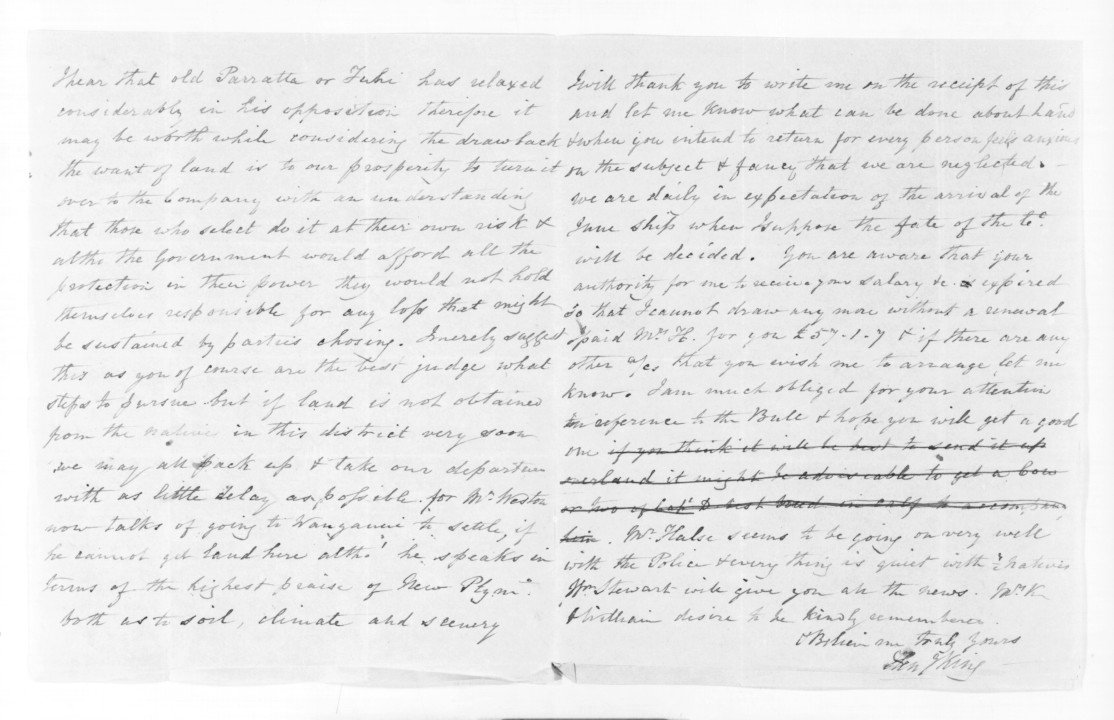 I hear that old Parratta or Tuhi has relaxed
considerably in his opposition therefore it
may be worth while considering the drawback
the want of land is to our prosperity to turn it
over to the Company with an understanding
that those who select do it at their own risk &
altho the Government would afford all the
protection in their power they would not hold
themselves responsible for any loss that might
be sustained by parties chosing. I merely suggest
this as you of course are the best judge what
steps to pursue but if land is not obtained
from the natives in this district very soon
we may all pack up & take our departure
with as little delay as possible for Mr Weston
now talks of going to Wanganui to settle, if
he cannot get land here altho' he speaks in
terms of the highest praise of New Plymth.
both as to soil, climate and scenery
I will thank you to write me on the receipt of this
and let me know what can be done about land
& when you intend to return for every person feels anxious
on the subject & fancy that we are neglected. -
we are daily in expectation of the arrival of the
June ship when I suppose the fate of the Co.
will be decided. You are aware that your
authority for me to receive your salary &c. expired
so that I cannot draw any more without a renewal
I paid Mrs H. for you £57-1-7 & if there are any
other a/cs that you wish me to arrange let me
know. I am much obliged for your attention
in reference to the Bull & hope you will get a good
one if you think it will be best to send it up
overland it might be adviseable to get a Cow
or two of best breed in calf to accompany
him. Mr Halse seems to be going on very well
with the Police & every thing is quiet with Natives
Wm Stewart will give you all the news. Mrs K
& William desire to be kindly remembered.
& Believe me truly Yours
Hen y King